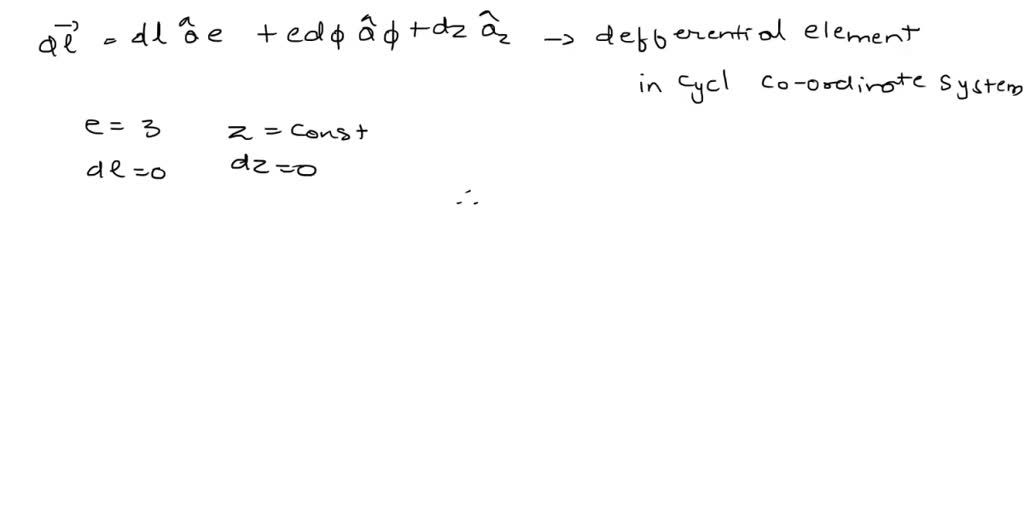 dl⃗ = dl â e + edφ âφ + dz âz → defferential element
in cycl co-ordinate system
e = 3 z = const
dl = 0 dz = 0
∴